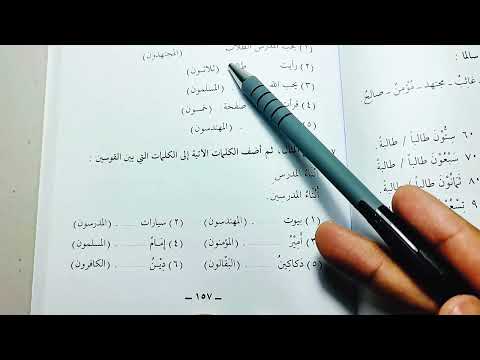 (١) يحب المدرس الطلاب (المجتهدون)
(٢) رأيت طالبا (ثلاثون)
(٣) يحب الله (المسلمون)
(٤) قرأت صفحة (خمسون)
(٥) . (المهندسون)
المثال، ثم أضف الكلمات الآتية إلى الكلمات التي بين القوسين.
أبناءُ المدرس
أبناءُ المدرسِين.
(١) بيوت ...... . (المهندسون) (٢) سيارات ...... . (المدرسون)
(٣) أميْرُ ...... . (المؤمنون) (٤) إمَامُ ...... . (المسلمون)
(٥) دكاكينُ ...... . (البقالون) (٦) دِيْنُ ...... . (الكافرون)
– ١٥٧ –
سالما:
غائبٌ – مجتهد – مُؤْمنٌ – صالحٌ
٦٠ سِتُّوْنَ طالباً / طالبةً.
سَبْعُوْنَ طالباً / طالبةً.
ثَمَانُوْنَ طالباً / طالبةً.
تِسْعُوْنَ